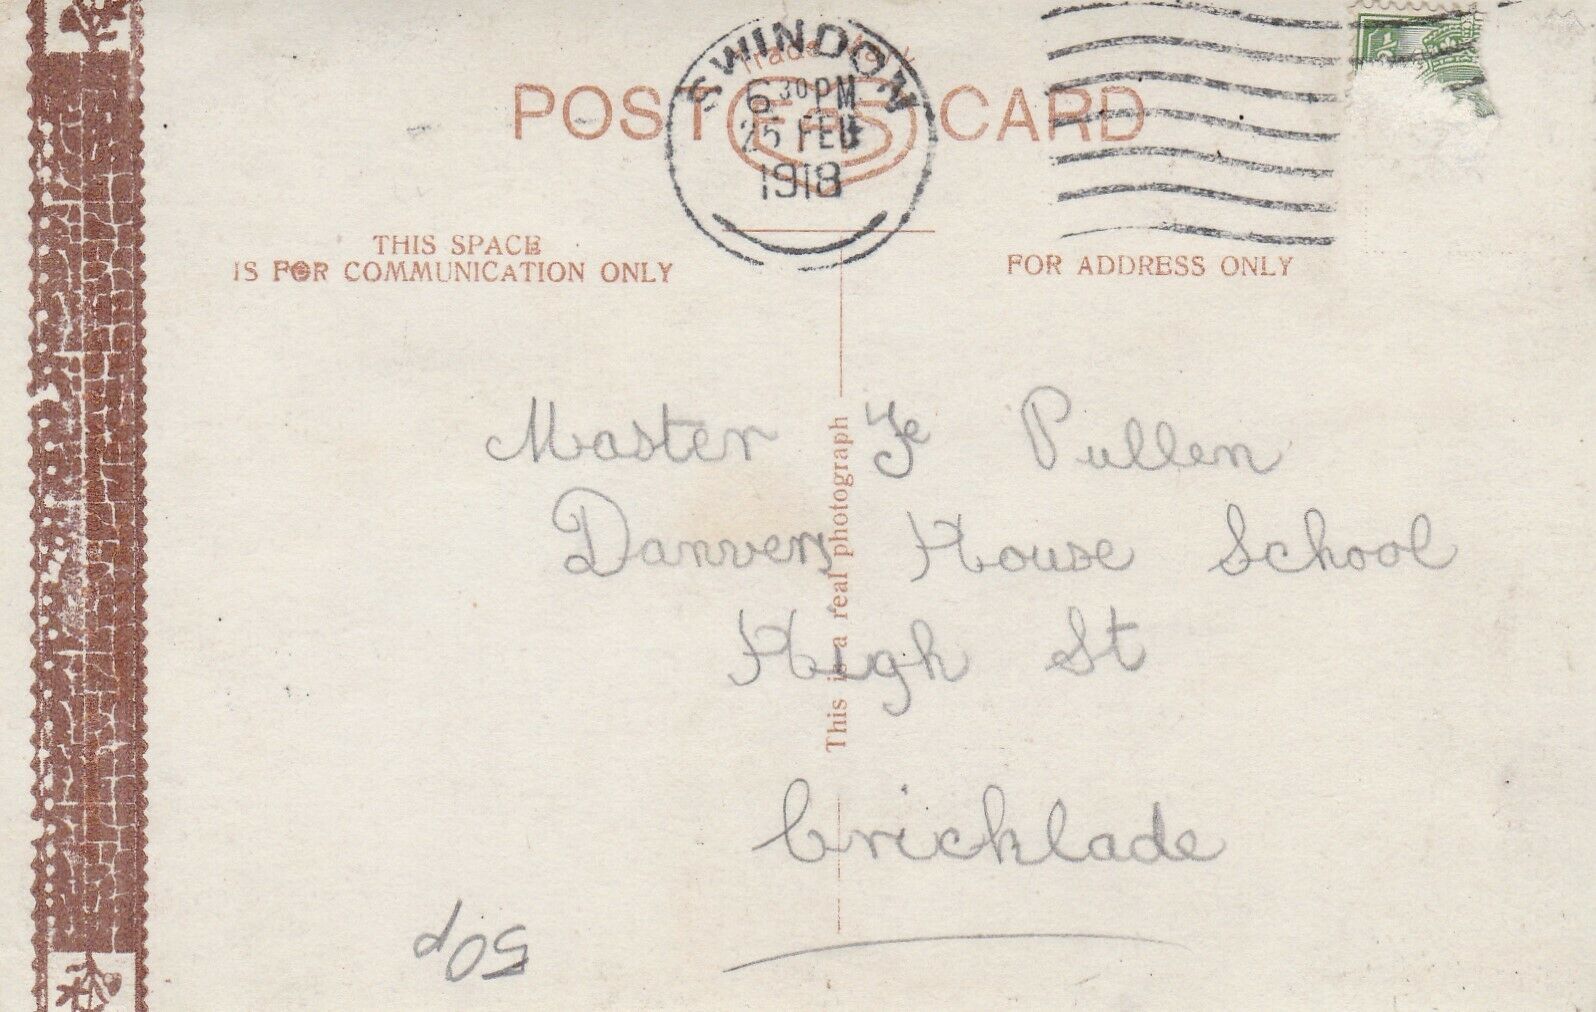 SWINDON
6 30 PM
25 FEB
1918
Trade Mark
POST CARD
THIS SPACE
IS FOR COMMUNICATION ONLY
FOR ADDRESS ONLY
This is a real photograph
Master Pullen
Danvers House School
High St
Cricklade
50p